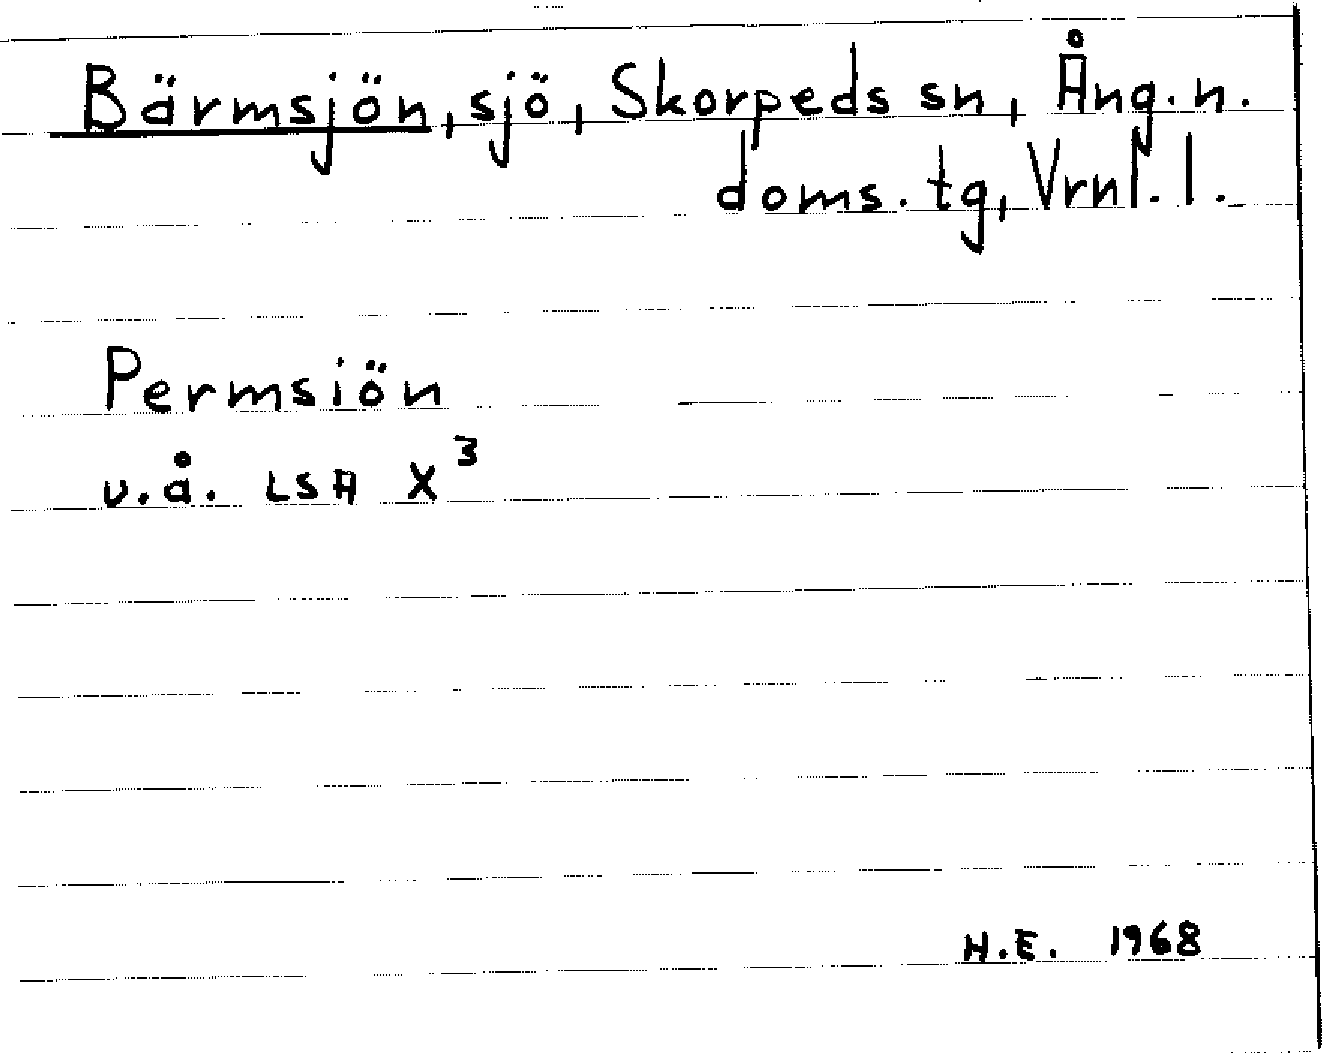 Bärmsjön, sjö, Skorpeds sn, Ång. n.
doms. tg, Vrnl. l.
Permsiön
u.å. LSA X³
H.E. 1968